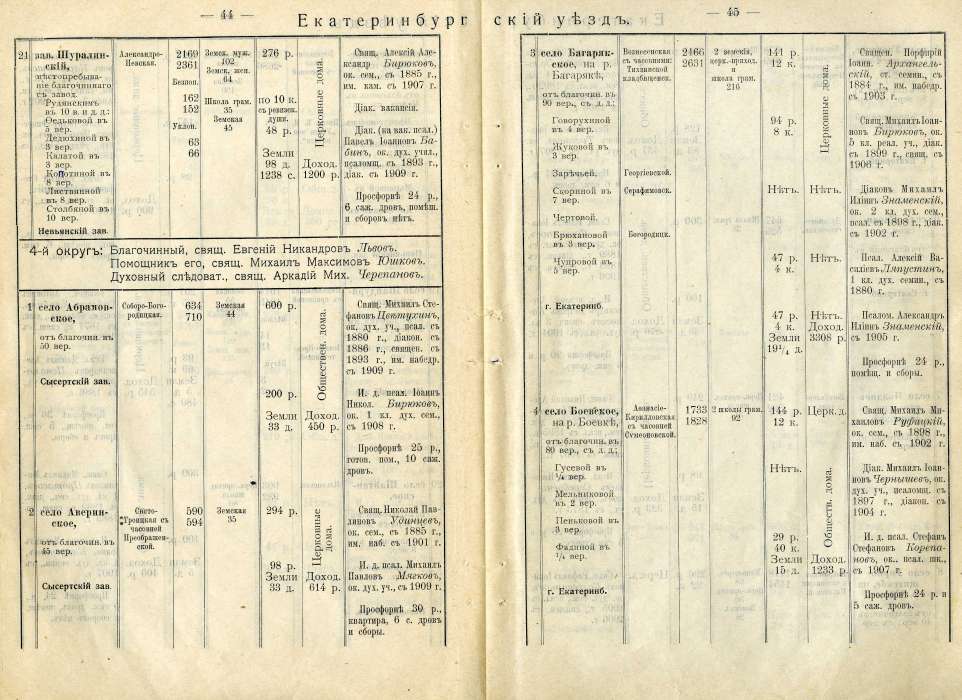 — 44 —
Екатеринбург
21
зав. Шуралин-
скій,
мѣстопребыва-
ніе благочиннаго
съ завод.
Рудянскимъ
въ 10 в. и д. д.:
Ѳедьковой въ
5 вер.
Дедюхиной въ
3 вер.
Калатой въ
3 вер.
Копотиной въ
8 вер.
Листвянной
въ 8 вер.
Столбяной въ
10 вер.
Невьянскій зав.
Александро-
Невская.
2169
2361
Безпоп.
162
152
Уклон.
63
66
Земск. муж.
102
Земск. жен.
64
Школа грам.
35
Земская
45
276 р.
по 10 к.
съ ревизск.
души.
48 р.
Земли
98 д.
1238 с.
Церковные дома.
Доход.
1200 р.
Свящ. Алексій Але-
ксандр Бирюковъ,
ок. сем., съ 1885 г.,
им. кам. съ 1907 г.
Діак. вакансія.
Діак. (на вак. псал.)
Павелъ Іоанновъ Ба-
бинъ, ок. дух. учил.,
псаломщ. съ 1893 г.,
діак. съ 1909 г.
Просфорнѣ 24 р.,
6 саж. дровъ, помѣщ.
и сборовъ нѣтъ.
4-й округъ: Благочинный, свящ. Евгеній Никандровъ Львовъ.
Помощникъ его, свящ. Михаилъ Максимовъ Юшковъ.
Духовный слѣдоват., свящ. Аркадій Мих. Черепановъ.
1
село Абрамов-
ское,
отъ благочин. въ
50 вер.
Сысертскій зав.
Соборо-Бого-
родицкая.
634
710
Земская
44
600 р.
200 р.
Земли
33 д.
Обществен. дома.
Доход.
450 р.
Свящ. Михаилъ Сте-
фановъ Цвѣтухинъ,
ок. дух. уч., псал. съ
1880 г., діакон. съ
1886 г., священ. съ
1893 г., им. набедр.
съ 1909 г.
И. д. псал. Іоаннъ
Никол. Бирюковъ,
ок. 1 кл. дух. сем.,
съ 1908 г.
Просфорнѣ 25 р.,
готов. пом., 10 саж.
дровъ.
2
село Аверин-
ское,
отъ благочин. въ
45 вер.
Сысертскій зав.
Свято-
Троицкая съ
часовней
Преображен-
ской.
590
594
Земская
35
294 р.
98 р.
Земли
33 д.
Церковные
дома.
Доход.
614 р.
Свящ. Николай Пав-
линовъ Удинцевъ,
ок. сем., съ 1885 г.,
им. наб. съ 1901 г.
И. д. псал. Михаилъ
Павловъ Мягковъ,
ок. дух. уч., съ 1909 г.
Просфорнѣ 30 р.,
квартира, 6 с. дровъ
и сборы.
— 45 —
скій уѣздъ.
3
село Багаряк-
ское, на р.
Багарякѣ,
отъ благочин. въ
90 вер., съ д. д.:
Говорухиной
въ 4 вер.
Жуковой въ
3 вер.
Зарѣчьей.
Скориной въ
7 вер.
Чертовой.
Брюхановой
въ 3 вер.
Чупровой въ
5 вер.
г. Екатеринб.
Вознесенская
съ часовнями:
Тихвинской
кладбищенск.
Георгіевской.
Серафимовск.
Богородицк.
2466
2631
2 земскія,
церк.-приход.
и
школа грам.
216
141 р.
12 к.
94 р.
8 к.
Нѣтъ.
47 р.
4 к.
47 р.
4 к.
Земли
19¼ д.
Церковные дома.
Нѣтъ.
Нѣтъ.
Нѣтъ.
Доход.
3308 р.
Священ. Порфирій
Іоанн. Архангель-
скій, ст. семин., съ
1884 г., им. набедр.
съ 1903 г.
Свящ. Михаилъ Іоан-
новъ Бирюковъ, ок.
5 кл. реал. уч., діак.
съ 1899 г., свящ. съ
1906 г.
Діаконъ Михаилъ
Иліинъ Знаменскій,
ок. 2 кл. дух. сем.,
псал. съ 1898 г., діак.
съ 1902 г.
Псал. Алексій Ва-
силіевъ Ляпустинъ,
1 кл. дух. семин., съ
1880 г.
Псалом. Александръ
Иліинъ Знаменскій,
съ 1905 г.
Просфорнѣ 24 р.,
помѣщ. и сборы.
4
село Боевское,
на р. Боевкѣ,
отъ благочин. въ
80 вер., съ д. д.:
Гусевой въ
¼ вер.
Мельниковой
въ 2 вер.
Пеньковой въ
3 вер.
Фадиной въ
¼ вер.
г. Екатеринб.
Аѳанасіе-
Кирилловская
съ часовней
Сѵмеоновской.
1733
1828
2 школы грам.
92
144 р.
12 к.
Нѣтъ.
29 р.
40 к.
Земли
15 д.
Церк. д.
Обществ. дома.
Доход.
1233 р.
Свящ. Михаилъ Ми-
хаиловъ Руфацкій,
ок. сем., съ 1898 г.,
им. наб. съ 1902 г.
Діак. Михаилъ Іоан-
новъ Чернышевъ, ок.
дух. уч., псаломщ. съ
1897 г., діакон. съ
1904 г.
И. д. псал. Стефанъ
Стефановъ Корепа-
новъ, ок. псал. шк.,
съ 1907 г.
Просфорнѣ 24 р. и
5 саж. дровъ.